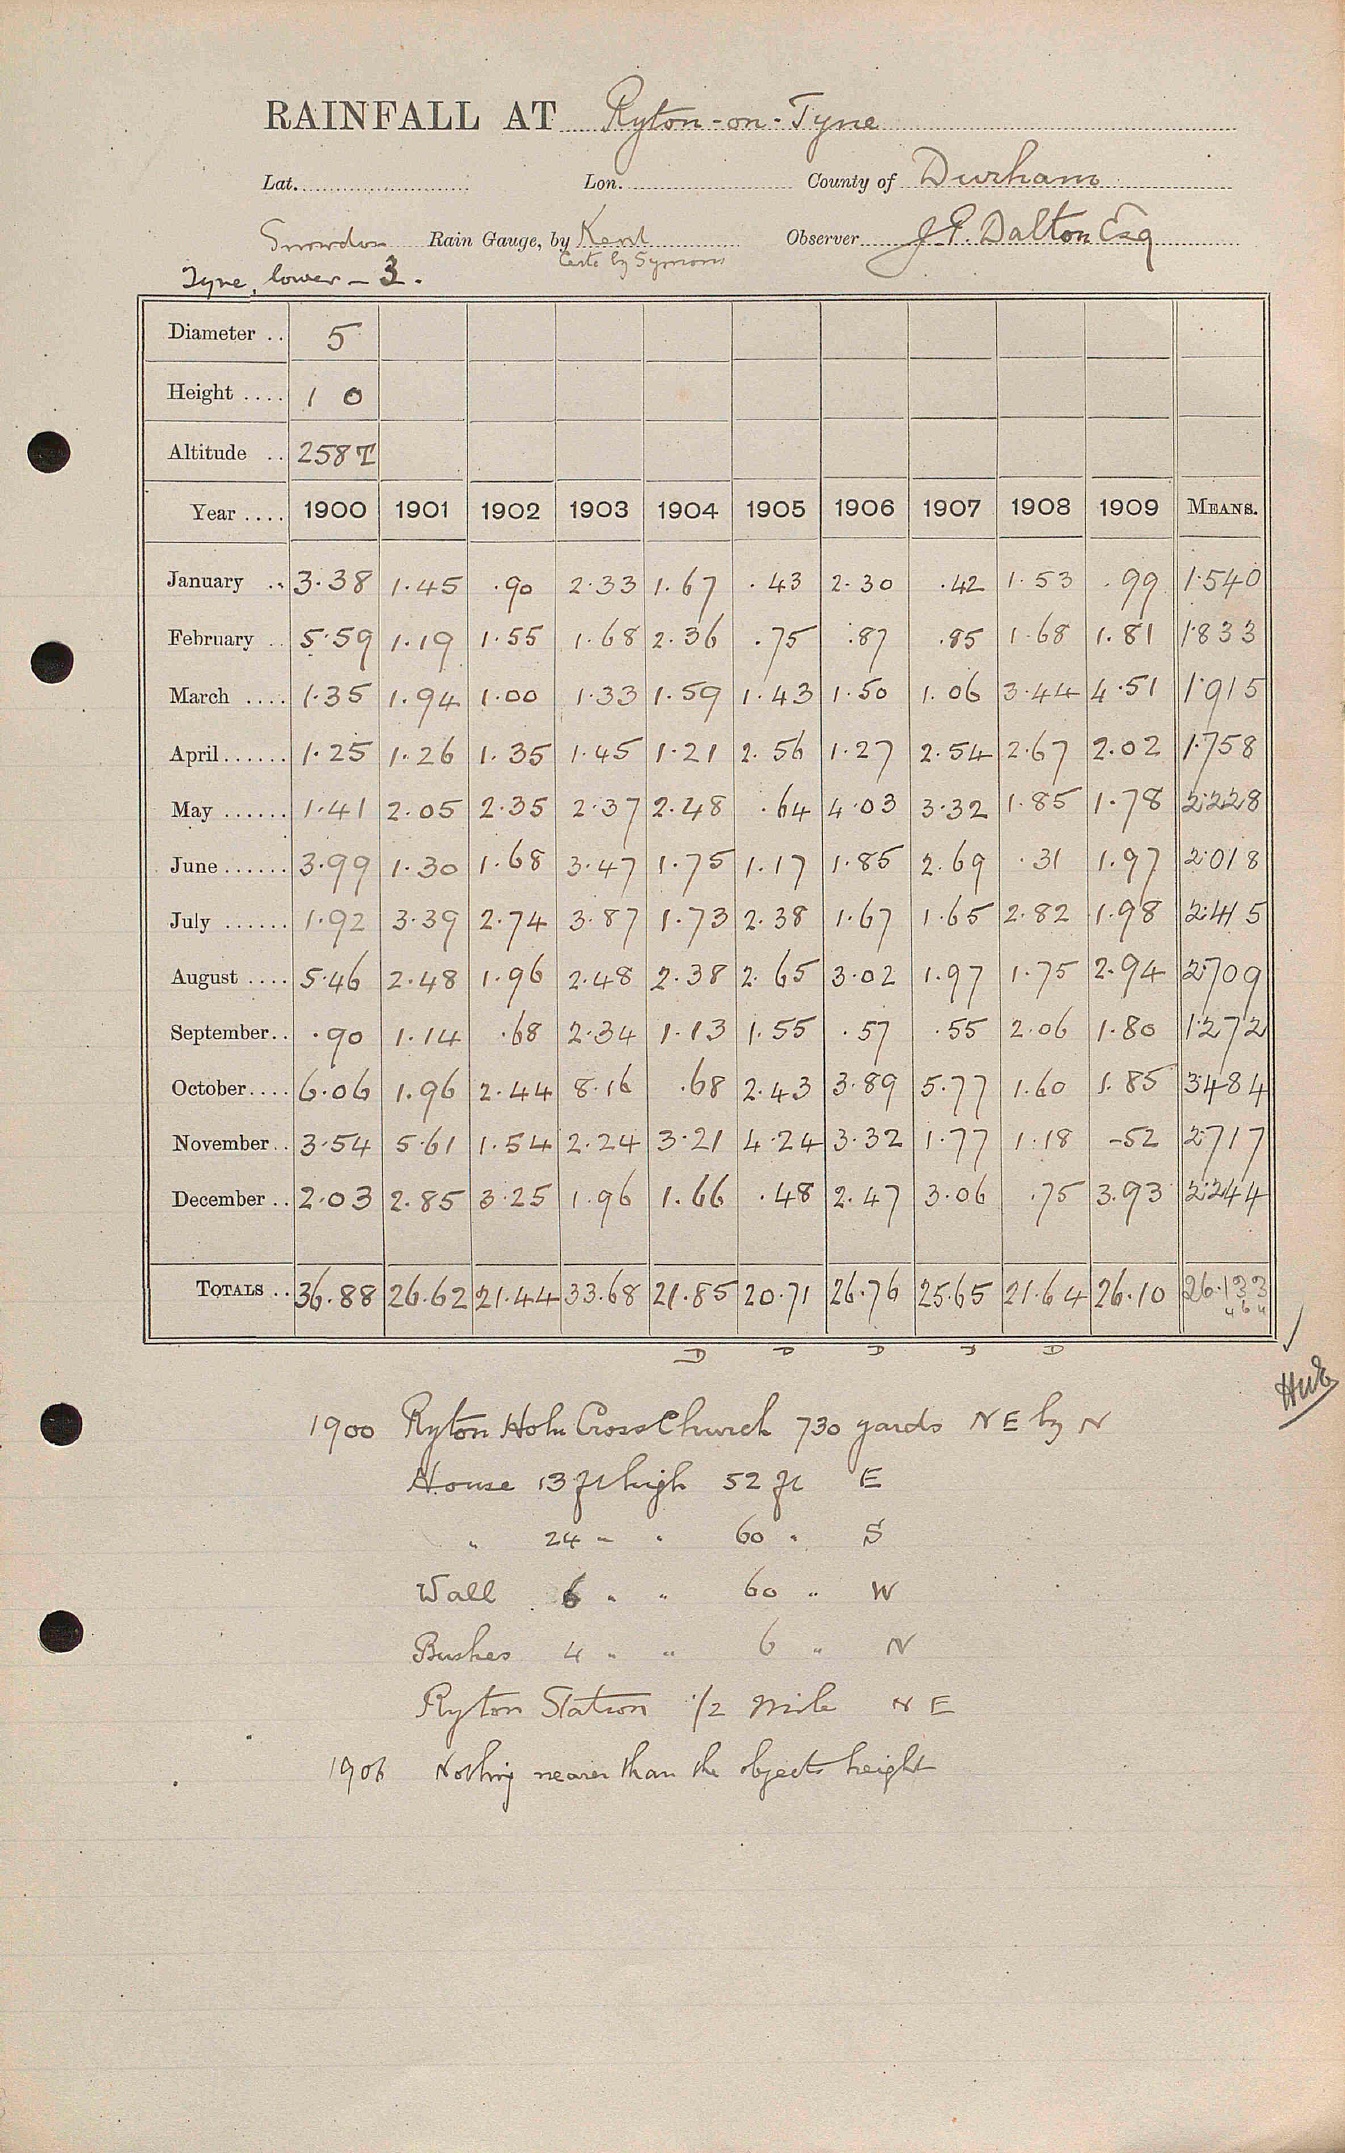 RAINFALL AT Ryton-on-Tyne
Lat. Lon. County of Durham
Snowdon Rain Gauge, by Kent Observer J.P. Dalton Esq
Certd by Symons
Tyne, lower - 3.
Diameter .. 5
Height .... 1 0
Altitude .. 258T
Year .... 1900 1901 1902 1903 1904 1905 1906 1907 1908 1909 MEANS.
January .. 3.38 1.45 .90 2.33 1.67 .43 2.30 .42 1.53 .99 1.540
February .. 5.59 1.19 1.55 1.68 2.36 .75 .87 .85 1.68 1.81 1.833
March .... 1.35 1.94 1.00 1.33 1.59 1.43 1.50 1.06 3.44 4.51 1.915
April ...... 1.25 1.26 1.35 1.45 1.21 2.56 1.27 2.54 2.67 2.02 1.758
May ...... 1.41 2.05 2.35 2.37 2.48 .64 4.03 3.32 1.85 1.78 2.228
June ...... 3.99 1.30 1.68 3.47 1.75 1.17 1.85 2.69 .31 1.97 2.018
July ...... 1.92 3.39 2.74 3.87 1.73 2.38 1.67 1.65 2.82 1.98 2.415
August .... 5.46 2.48 1.96 2.48 2.38 2.65 3.02 1.97 1.75 2.94 2.709
September.. .90 1.14 .68 2.34 1.13 1.55 .57 .55 2.06 1.80 1.272
October.... 6.06 1.96 2.44 8.16 .68 2.43 3.89 5.77 1.60 1.85 3.484
November.. 3.54 5.61 1.54 2.24 3.21 4.24 3.32 1.77 1.18 .52 2.717
December .. 2.03 2.85 3.25 1.96 1.66 .48 2.47 3.06 .75 3.93 2.244
TOTALS .. 36.88 26.62 21.44 33.68 21.85 20.71 26.76 25.65 21.64 26.10 26.133
D D D D D
1900 Ryton Holy Cross Church 730 yards NE by N
House 13 ft high 52 ft E
" 24 " " 60 " S
Wall 6 " " 60 " W
Bushes 4 " " 6 " N
Ryton Station 1/2 mile NE
1906 Nothing nearer than the objects height